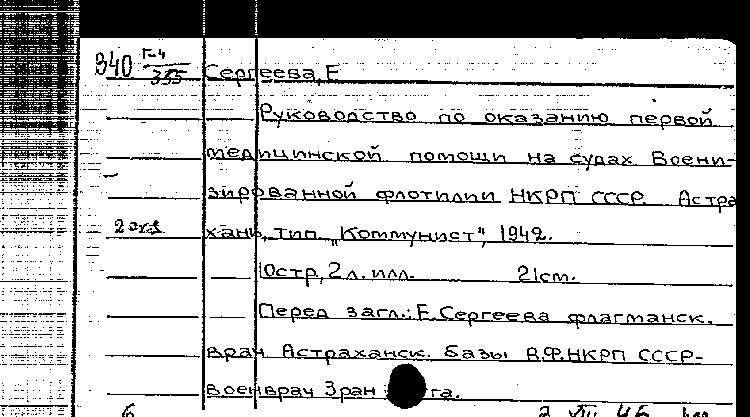 В40 Г-4/355 Сергеева, Е
Руководство по оказанию первой
медицинской помощи на судах Воени-
зированной флотилии НКРП СССР. Астра
хань, тип. „Коммунист", 1942.
2 экз
10стр, 2 л. илл. 21см.
Перед загл.: Е. Сергеева флагманск.
врач Астраханск. базы В.Ф. НКРП СССР-
военврач 3ран га.
6 2 VIII 46